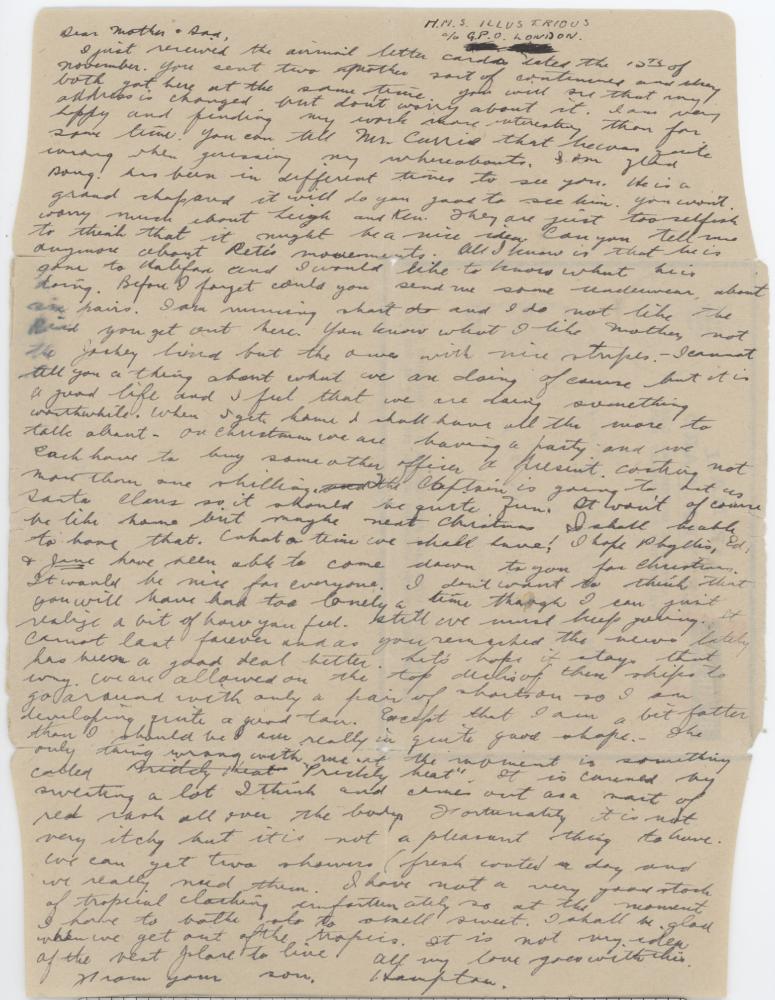 H.M.S. ILLUSTRIOUS
c/o G.P.O. LONDON.
Dear Mother & Dad,
I just received the airmail letter cards dated the 12th of
November. You sent two another sort of continued and they
both got here at the same time. You will see that my
address is changed but dont worry about it. I am very
happy and finding my work more interesting than for
some time. You can tell Mr. Currie that he was quite
wrong when guessing my whereabouts. I am glad
Doug. has been in different times to see you. He is a
grand chap and it will do you good to see him. You won't
worry much about Leigh and Ken. They are just too selfish
to think that it might be a nice idea. Can you tell me
anymore about Pete's movements. All I know is that he is
gone to Halifax and I would like to know what he is
doing. Before I forget could you send me some underwear, about
six pairs. I am running short do and I do not like the
kind you get out here. You know what I like Mother, not
the jockey kind but the ones with nice stripes. - I cannot
tell you a thing about what we are doing of course but it is
a good life and I feel that we are doing something
worthwhile. When I get home I shall have all the more to
talk about - On Christmas we are having a party and we
each have to buy some other officer a present, costing not
more than one shilling. and the Captain is going to act as
Santa Claus so it should be quite fun. It won't of course
be like home but maybe next Christmas I shall be able
to have that. What a time we shall have! I hope Phyllis, Ed,
& Jane have been able to come down to you for Christmas.
It would be nice for everyone. I don't want to think that
you will have had too lonely a time though I can just
realize a bit of how you feel. Still we must keep going. It
cannot last forever and as you remarked the news lately
has been a good deal better. Let's hope it stays that
way. We are allowed on the top decks of then ships to
go around with only a pair of shorts on so I am
developing quite a good tan. Except that I am a bit fatter
than I should be I am really in quite good shape. - The
only thing wrong with me at the moment is something
called Prickely heat "Prickely heat". It is caused by
sweating a lot I think and comes out as a sort of
red rash all over the body. Fortunately it is not
very itchy but it is not a pleasant thing to have.
We can get two showers (fresh water) a day and
we really need them. I have not a very good stock
of tropical clothing unfortunately so at the moment
I have to bathe also to smell sweet. I shall be glad
when we get out of the tropics. It is not my idea
of the best place to live All my love goes with this.
From your son, Hampton.